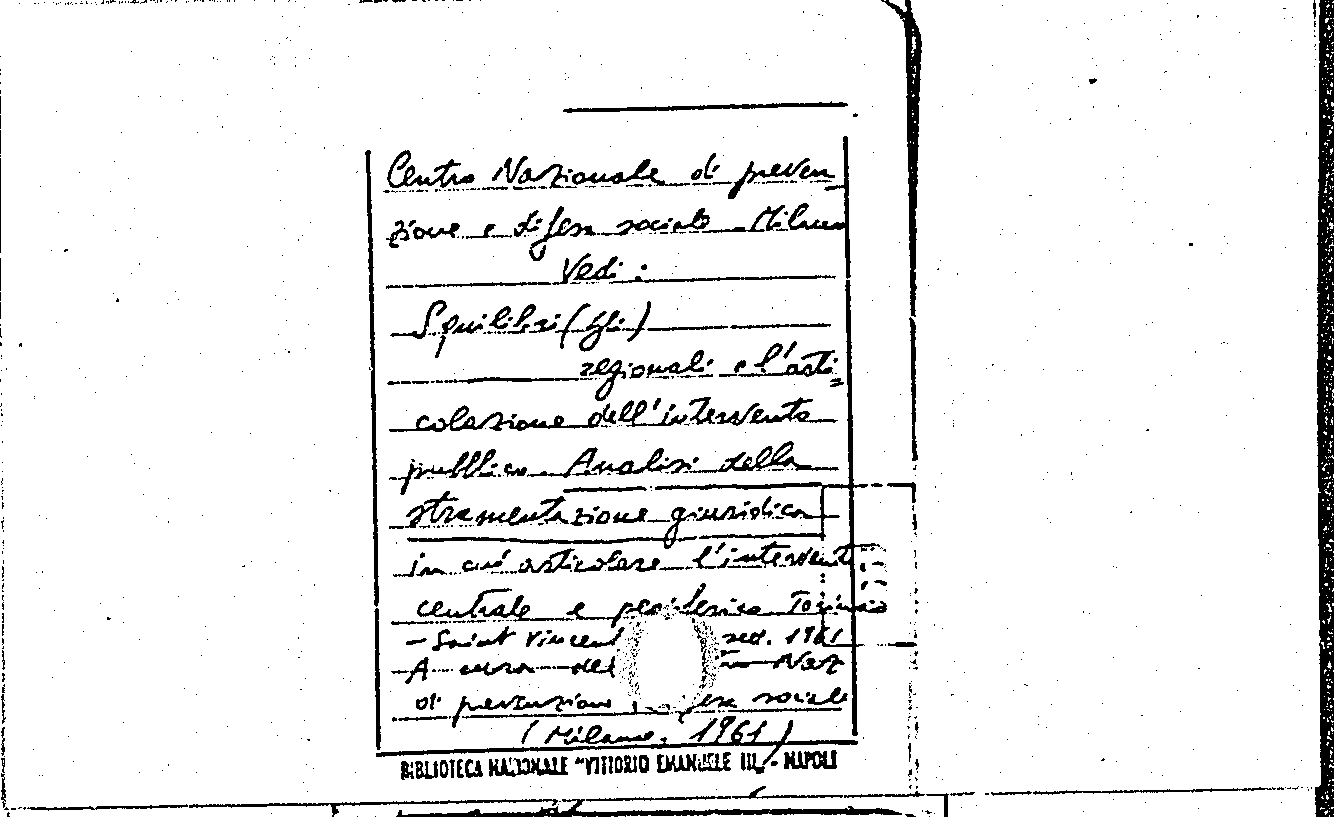 Centro Nazionale di preven
zione e difesa sociale - Milano
Vedi:
Squilibri (Gli)
regionali e l'arti=
colazione dell'intervento
pubblico. Analisi della
strumentazione giuridica
in cui articolare l'intervento
centrale e periferico Torino
- Saint Vincent set. 1961
A cura del Naz
di prevenzione sociale
(Milano, 1961)
BIBLIOTECA NAZIONALE "VITTORIO EMANUELE III„ - NAPOLI